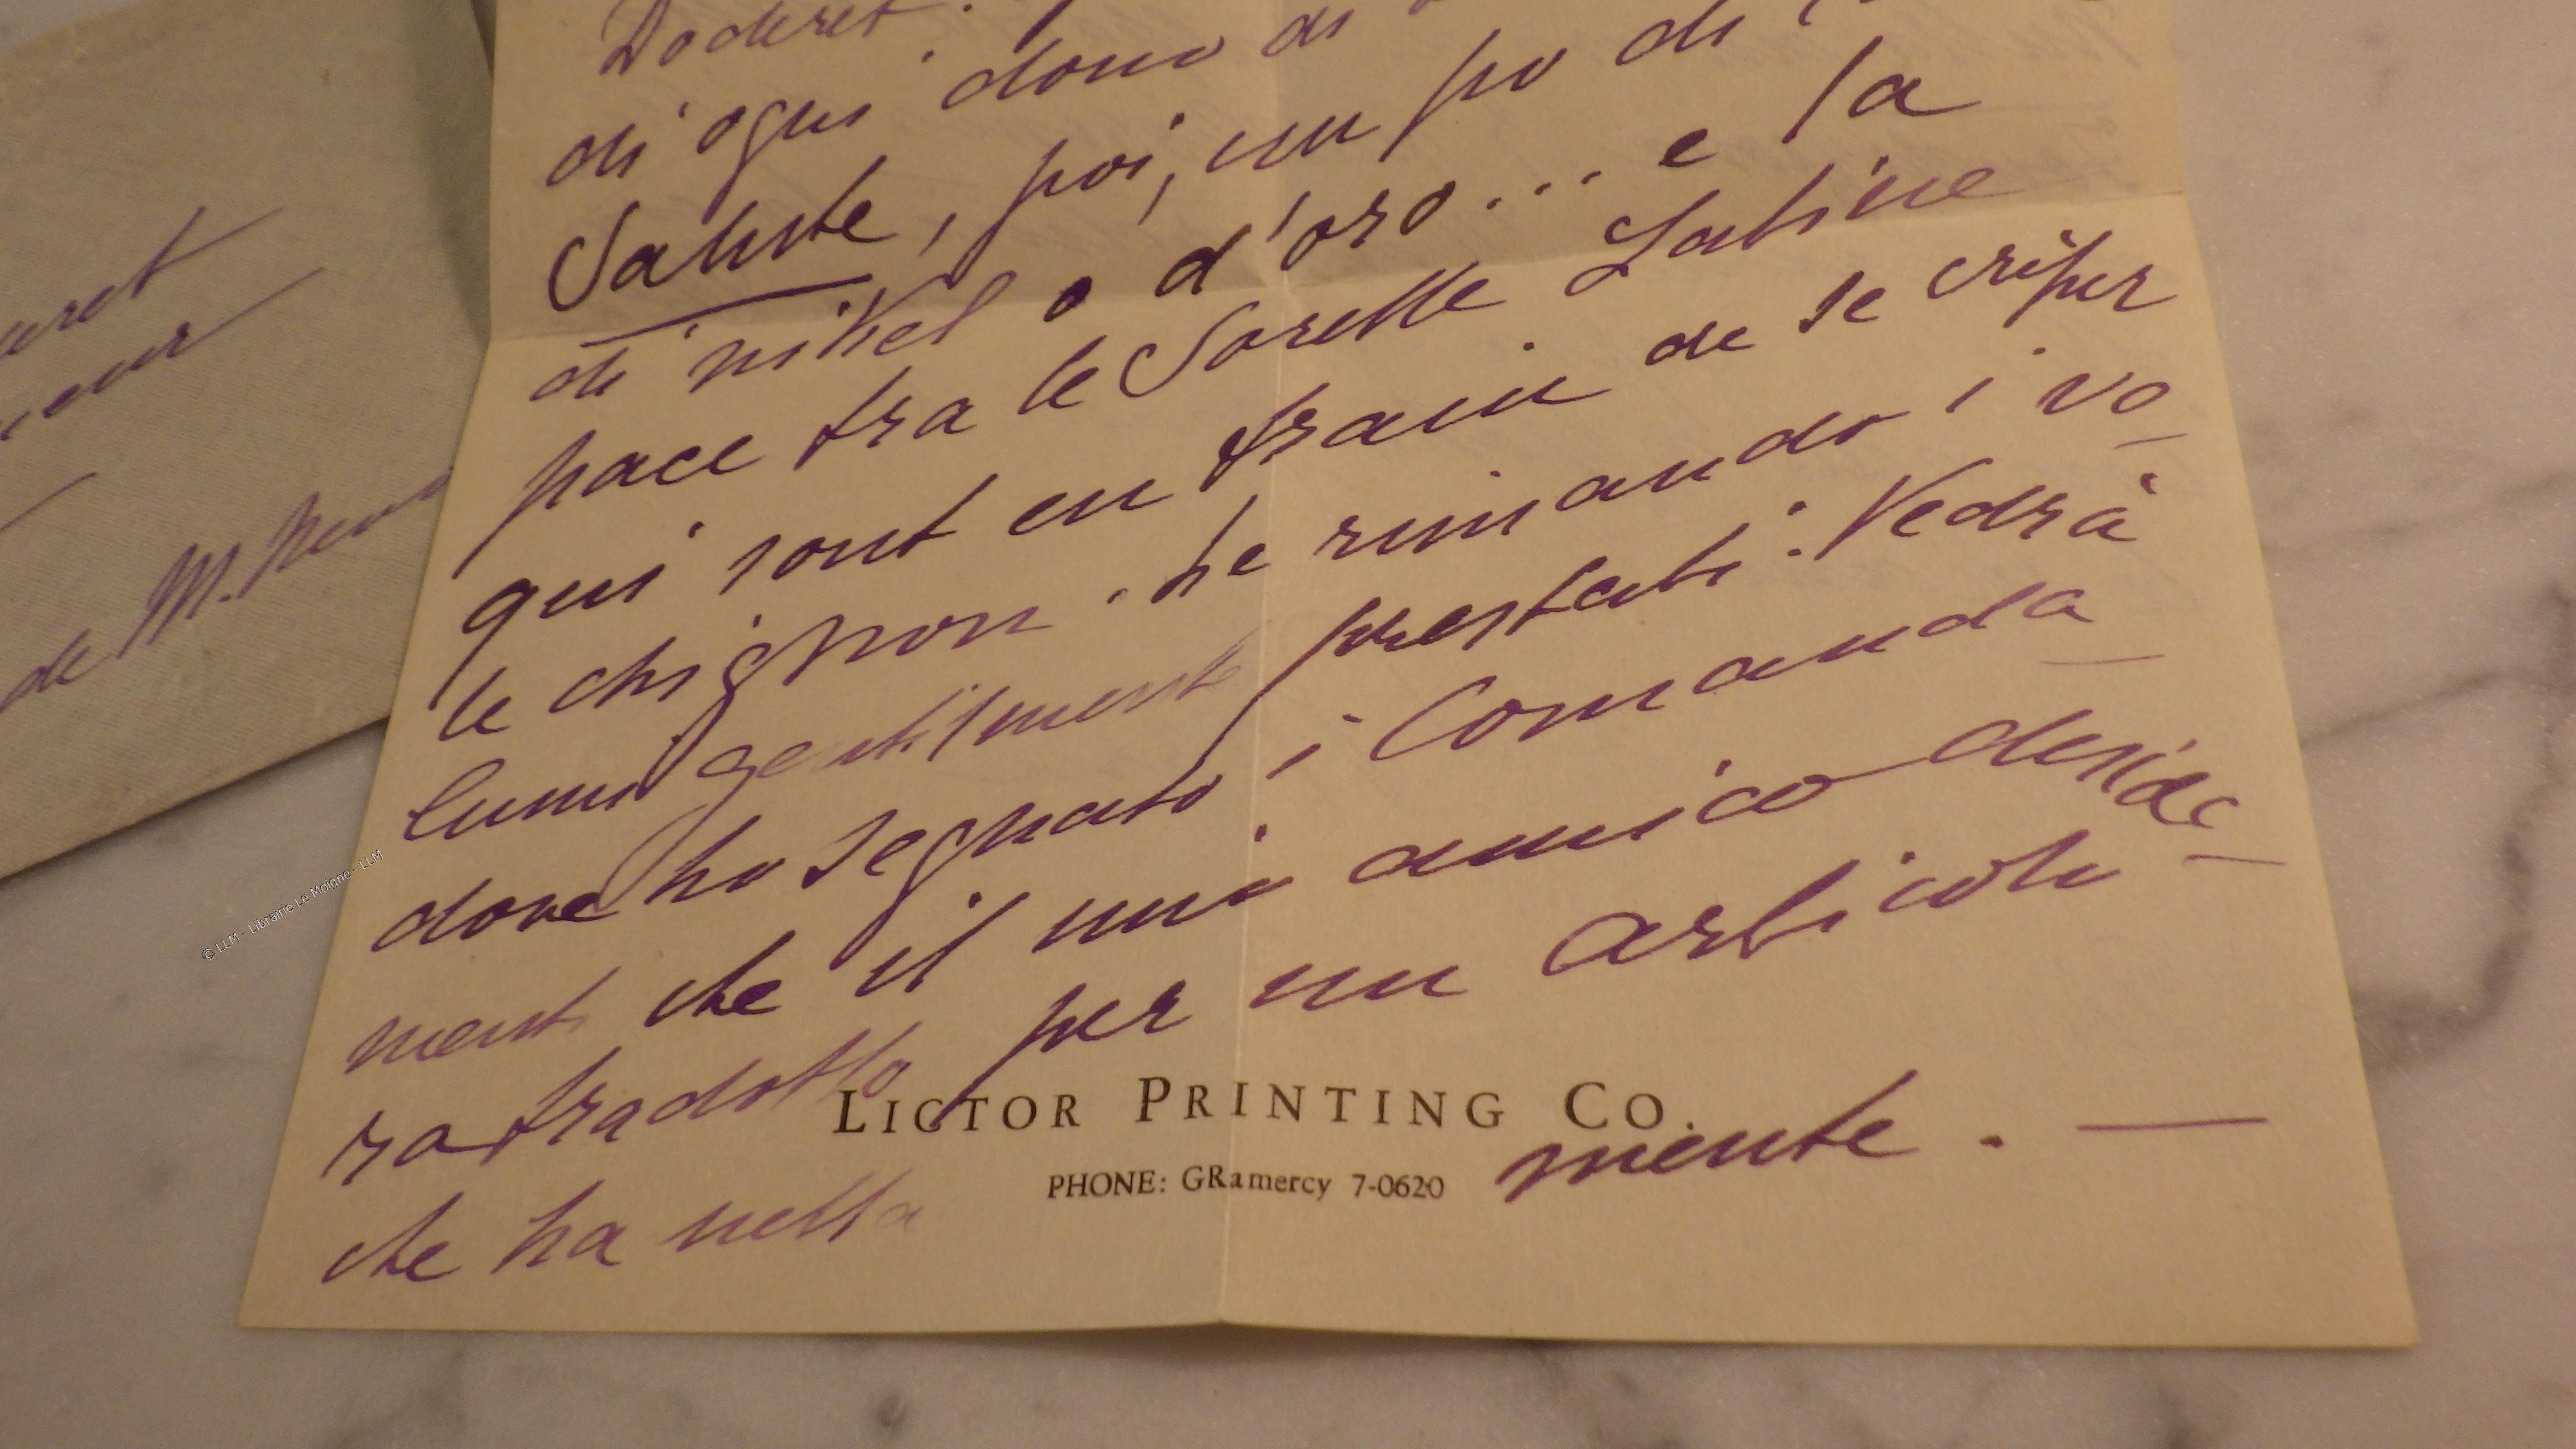 Doderet.
di ogni dono di
Salute, poi, un po di
di nikel o d'oro... e la
pace fra le Sorelle Latine
qui sont en train de se crêper
le chignon. Le rimando i vo-
lumi gentilmente prestati: Vedrà
dove ho segnato i Comanda-
menti che il mio amico deside-
ra tradotto per un articolo
che ha nella mente. —
LICTOR PRINTING CO.
PHONE: GRamercy 7-0620
eret
eur
de M. 
© LLM - Librairie Le Moigne - LLM